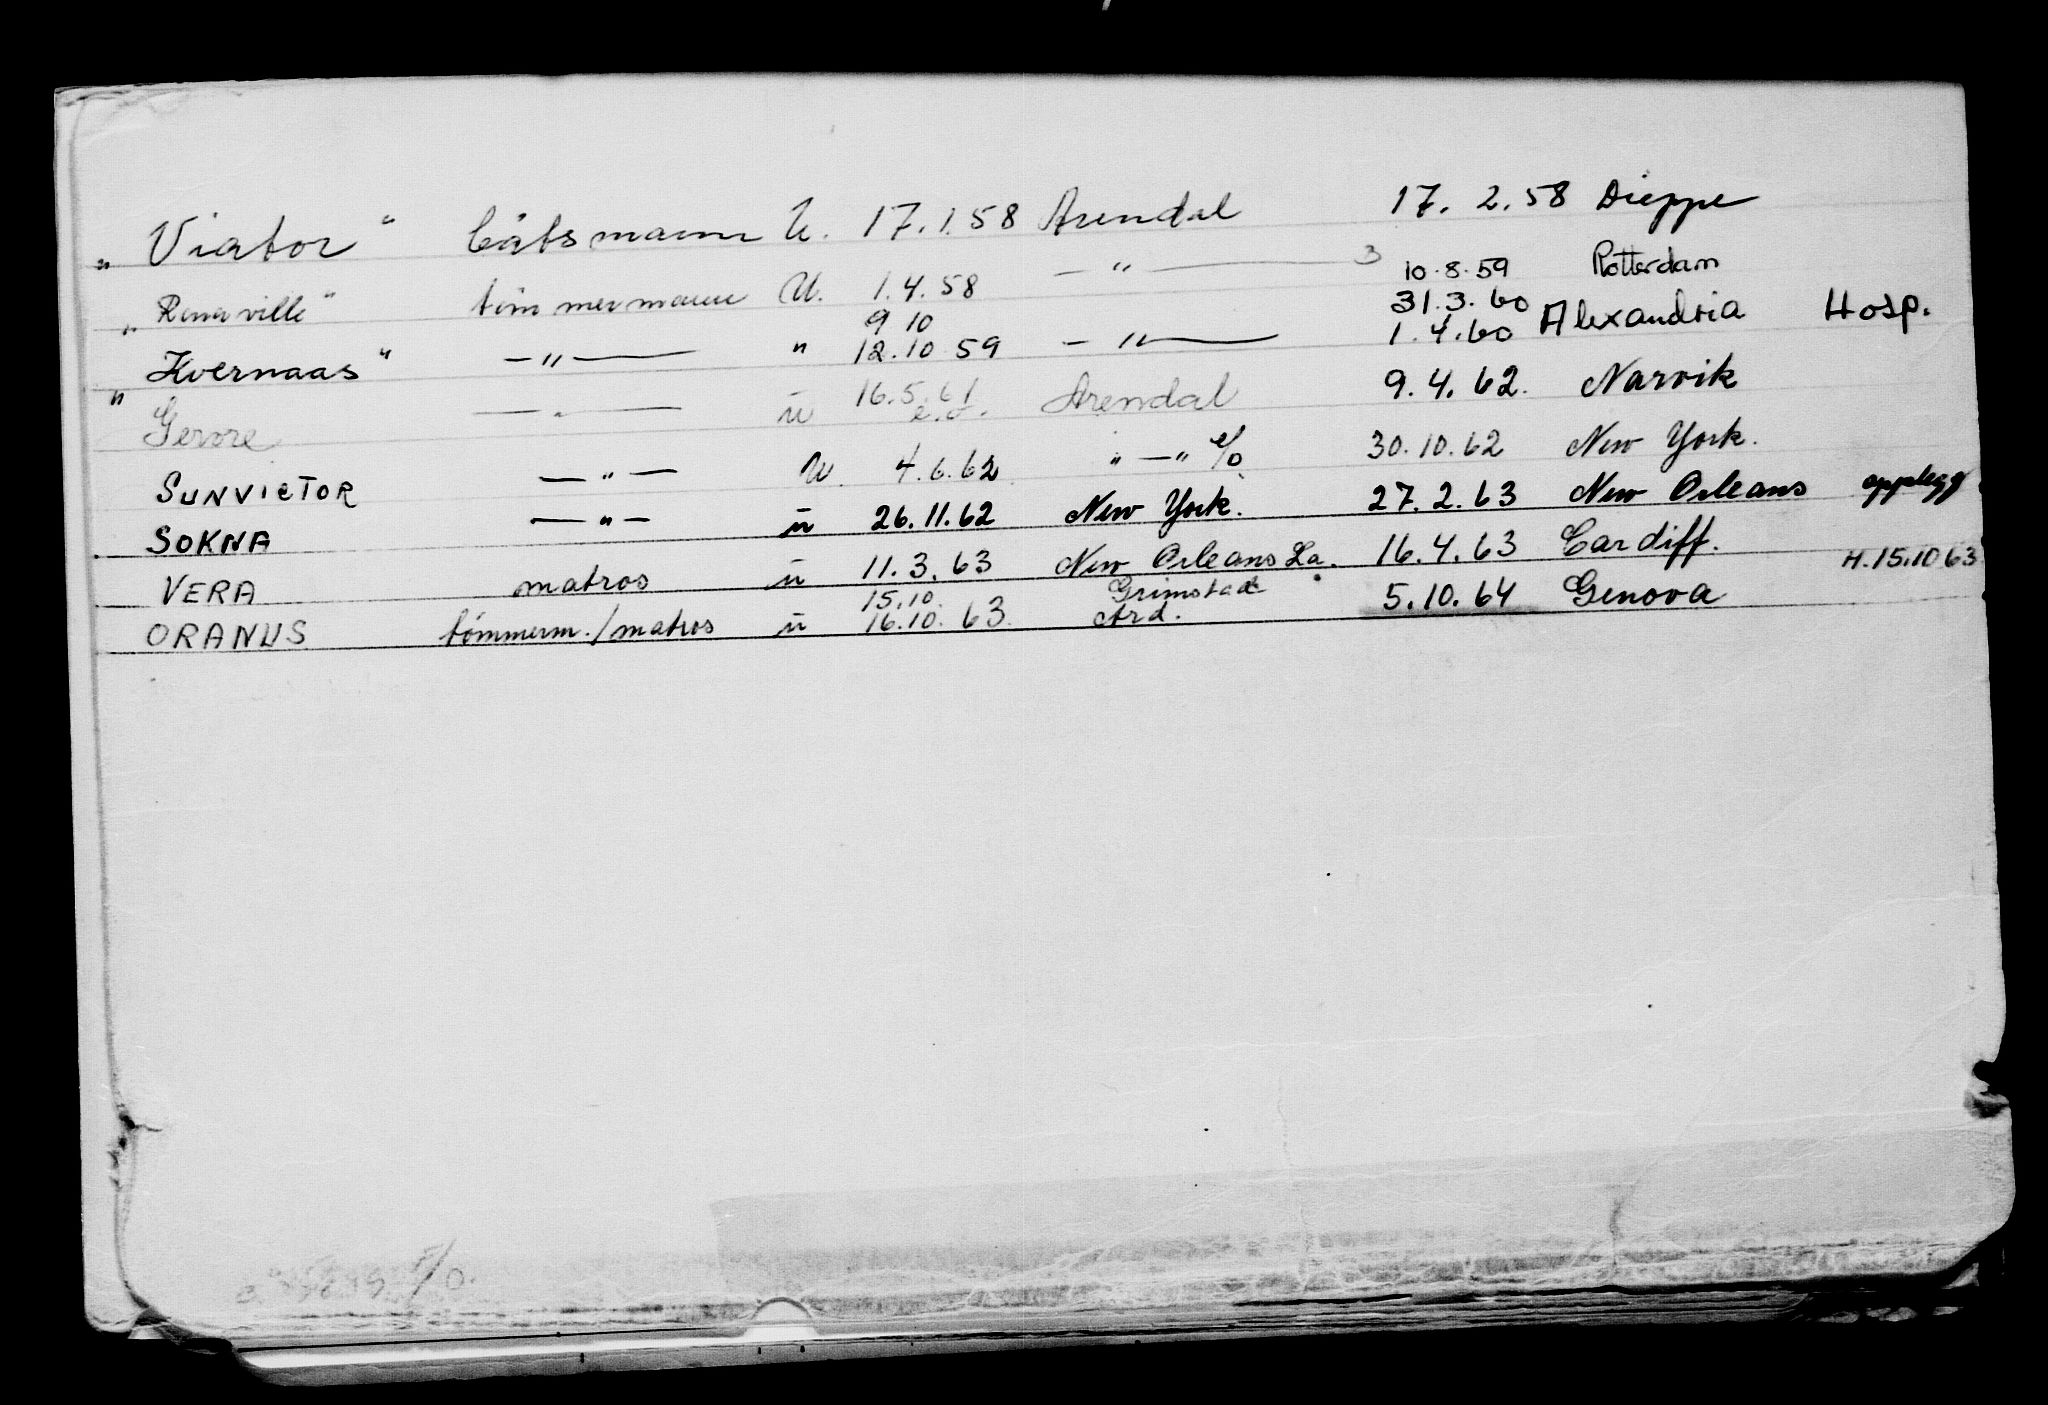 „ Viator “ båtsmann U. 17.1.58 Arendal 17. 2.58 Dieppe
„ Renaville “ tømmermann U. 1.4.58 — “ — 3 10.8.59 Rotterdam
9 10 31.3.60
" Kvernaas “ — " — " 12.10 59 — " — 1.4.60 Alexandria Hosp.
Gerore — " — ü 16.5.61 e.o. Arendal 9.4.62. Narvik
SUNVICTOR — " — U. 4.6.62 " — " e/o 30.10.62 New York.
SOKNA — " — ü 26.11.62 New York. 27.2.63 New Orleans opplegg
VERA matros ü 11.3.63 New Orleans La. 16.4.63 Cardiff. H.15.10 63
15.10. Grimstad
ORANUS tømmerm./matros ü 16.10. 63. Ard. 5.10.64 Genova